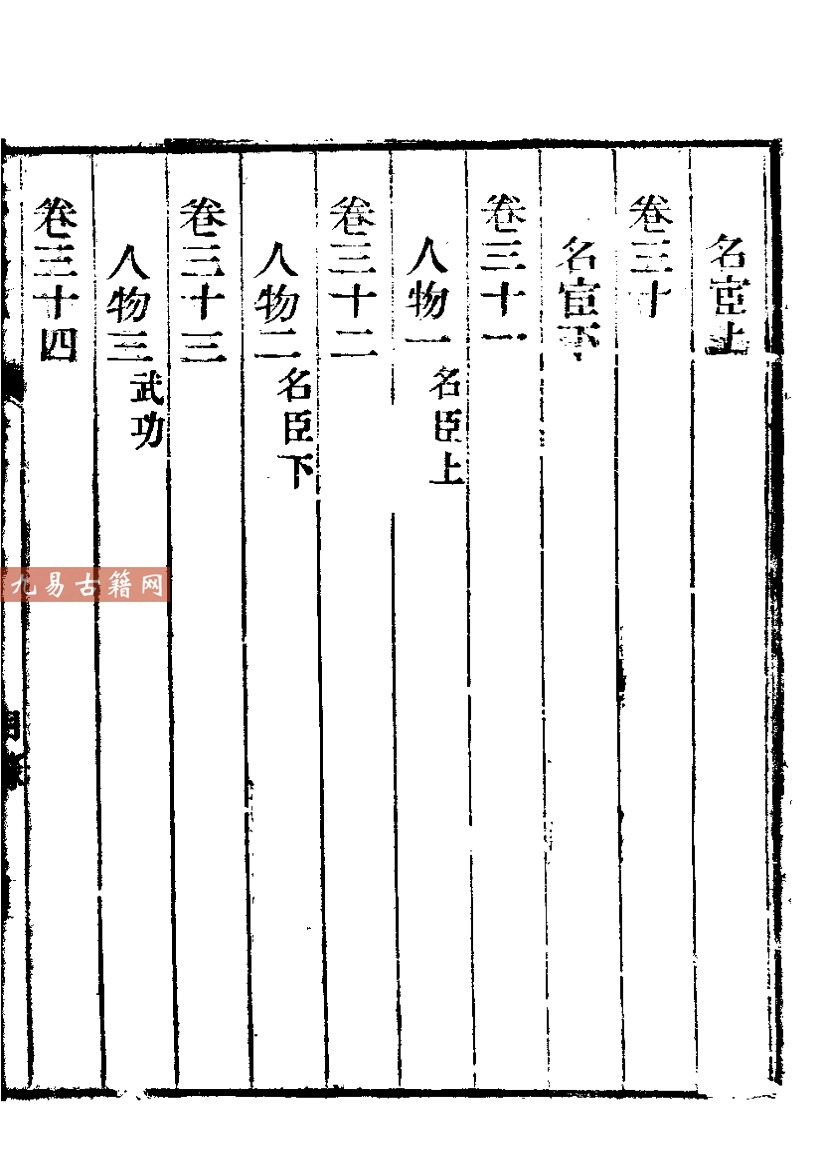 名宦上
卷三十
名宦下
卷三十一
人物一 名臣上
卷三十二
人物二 名臣下
卷三十三
人物三 武功
卷三十四
九易古籍网